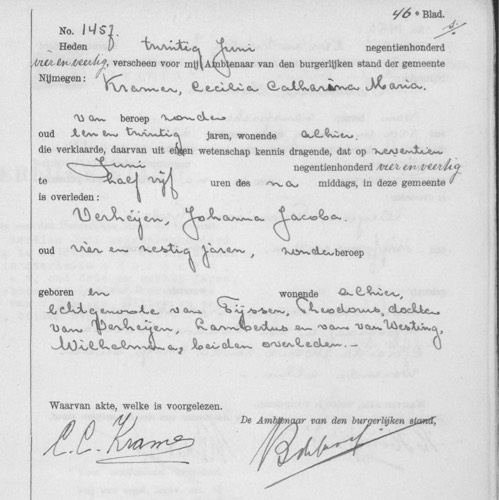 46e Blad.
No. 1457
Heden twintig Juni negentienhonderd
vier en veertig, verscheen voor mij Ambtenaar van den burgerlijken stand der gemeente
Nijmegen: Kramer, Cecilia Catharina Maria.
van beroep zonder
oud een en twintig jaren, wonende alhier.
die verklaarde, daarvan uit eigen wetenschap kennis dragende, dat op zeventien
Juni negentienhonderd vier en veertig
te half vijf uren des na middags, in deze gemeente
is overleden:
Verheijen, Johanna Jacoba.
oud vier en zestig jaren, zonder beroep
geboren en wonende alhier,
echtgenoote van Tijssen, Theodorus, dochter
van Verheijen, Lambertus en van van Westing,
Wilhelmina, beiden overleden.-
Waarvan akte, welke is voorgelezen.
De Ambtenaar van den burgerlijken stand,
C. C. Kramer